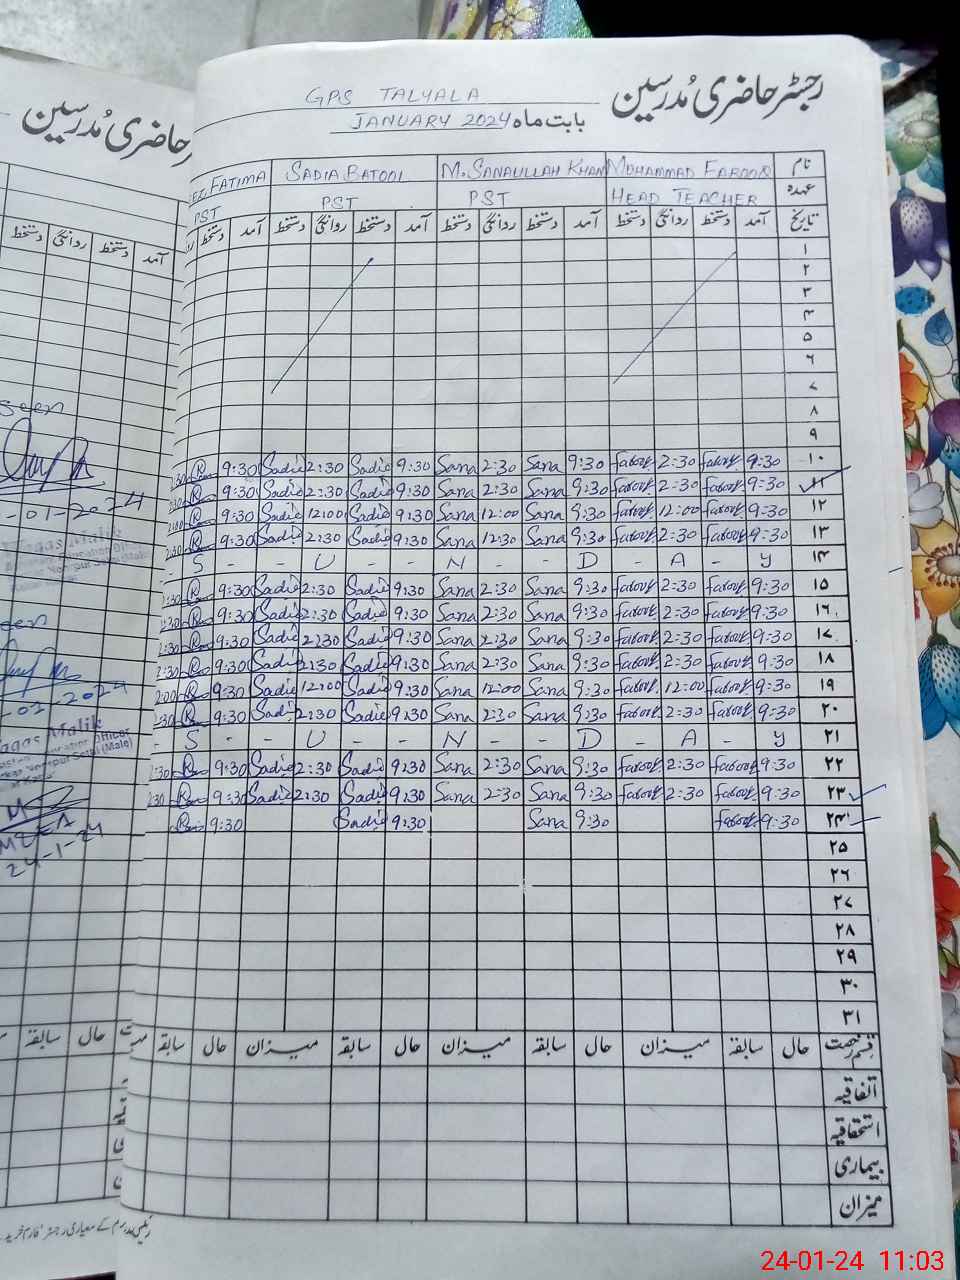 رجسٹر حاضری مُدرسین
GPS TALYALA
بابت ماہ JANUARY 2024
نام MOHAMMAD FAROOQ M. SANAULLAH KHAN SADIA BATOOL FATIMA
عہدہ HEAD TEACHER PST PST PST
تاریخ آمد دستخط روانگی دستخط آمد دستخط روانگی دستخط آمد دستخط روانگی دستخط آمد دستخط
۱
۲
۳
۴
۵
۶
۷
۸
۹
۱۰ 9:30 Farooq 2:30 Farooq 9:30 Sana 2:30 Sana 9:30 Sadia 2:30 Sadia 9:30
۱۱ 9:30 Farooq 2:30 Farooq 9:30 Sana 2:30 Sana 9:30 Sadia 2:30 Sadia 9:30
۱۲ 9:30 Farooq 12:00 Farooq 9:30 Sana 12:00 Sana 9:30 Sadia 12:00 Sadia 9:30
۱۳ 9:30 Farooq 2:30 Farooq 9:30 Sana 12:30 Sana 9:30 Sadia 2:30 Sadia 9:30
۱۴ S - - U - - N - - D - A - Y
۱۵ 9:30 Farooq 2:30 Farooq 9:30 Sana 2:30 Sana 9:30 Sadia 2:30 Sadia 9:30
۱۶ 9:30 Farooq 2:30 Farooq 9:30 Sana 2:30 Sana 9:30 Sadia 2:30 Sadia 9:30
۱۷ 9:30 Farooq 2:30 Farooq 9:30 Sana 2:30 Sana 9:30 Sadia 2:30 Sadia 9:30
۱۸ 9:30 Farooq 2:30 Farooq 9:30 Sana 2:30 Sana 9:30 Sadia 2:30 Sadia 9:30
۱۹ 9:30 Farooq 12:00 Farooq 9:30 Sana 12:00 Sana 9:30 Sadia 12:00 Sadia 9:30
۲۰ 9:30 Farooq 2:30 Farooq 9:30 Sana 2:30 Sana 9:30 Sadia 2:30 Sadia 9:30
۲۱ S - - U - - N - - D - A - Y
۲۲ 9:30 Farooq 2:30 Farooq 9:30 Sana 2:30 Sana 9:30 Sadia 2:30 Sadia 9:30
۲۳ 9:30 Farooq 2:30 Farooq 9:30 Sana 2:30 Sana 9:30 Sadia 2:30 Sadia 9:30
۲۴ 9:30 Farooq 9:30 Sana 9:30 Sadia 9:30
۲۵
۲۶
۲۷
۲۸
۲۹
۳۰
۳۱
قسم رخصت حال سابقہ میزان حال سابقہ میزان حال سابقہ میزان حال سابقہ
اتفاقیہ
استحقاقیہ
بیماری
میزان
حاضری مُدرسین
آمد دستخط روانگی دستخط
seen
-01-2024
Waqas Malik
een
-01-2024
Waqas Malik
Officer
(Male)
24-1-24
حال سابقہ
24-01-24 11:03